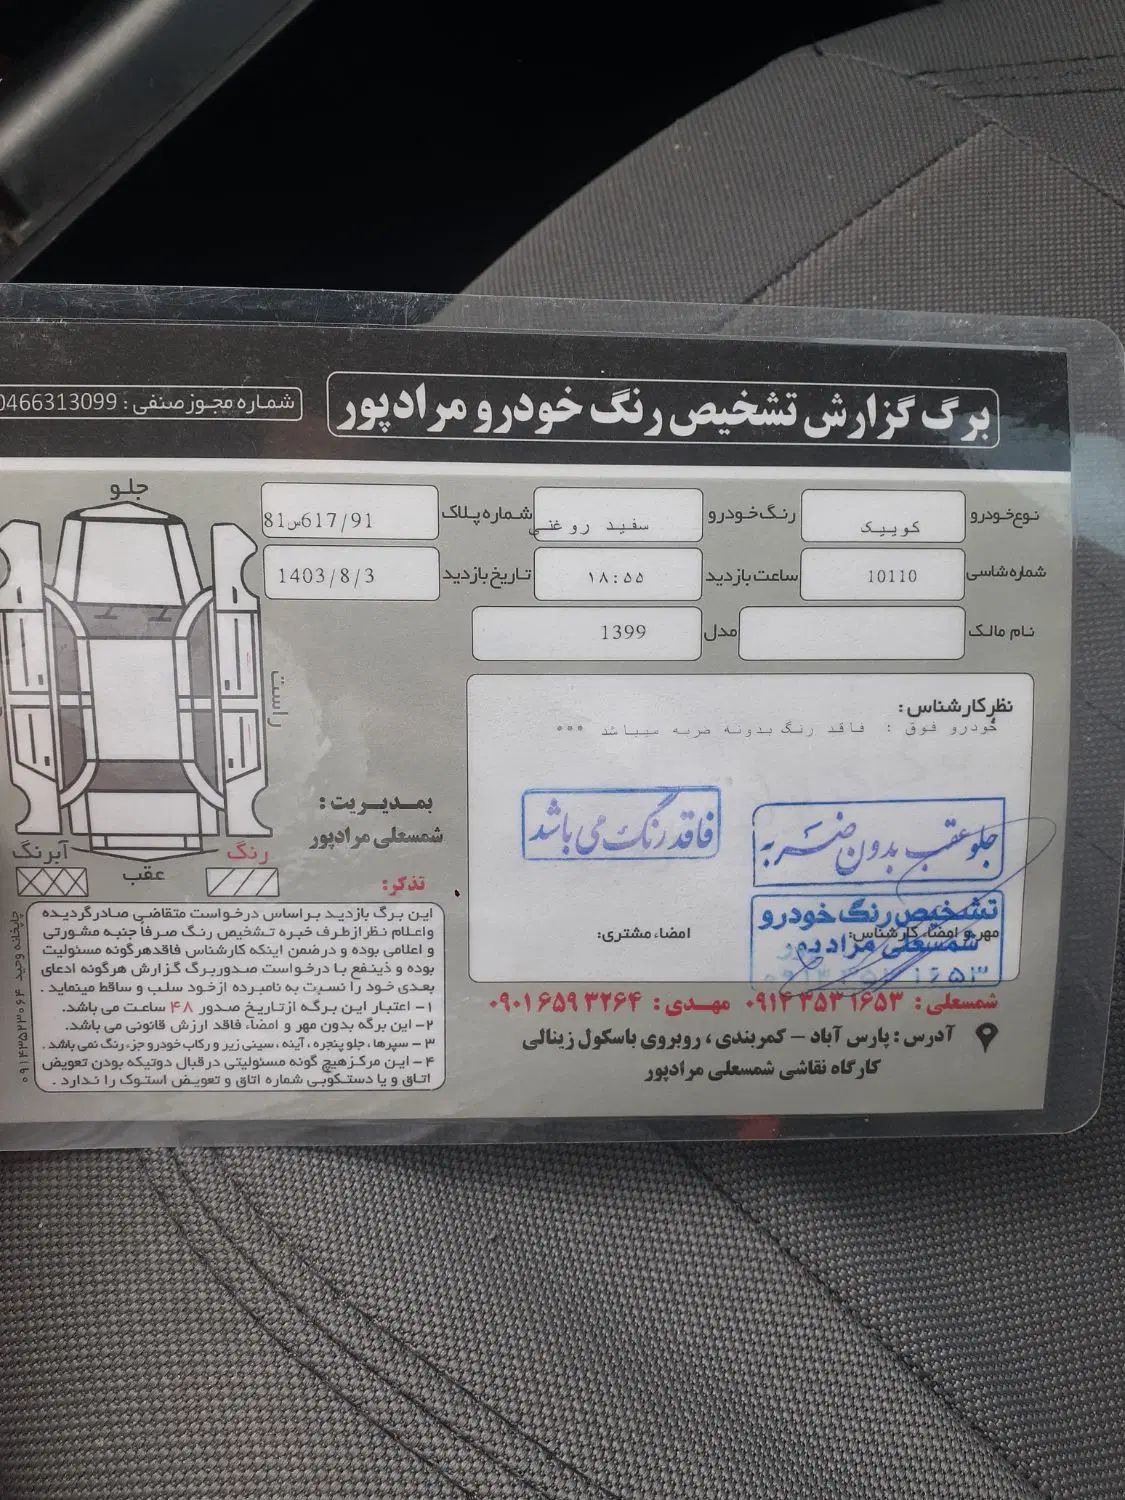 برگ گزارش تشخیص رنگ خودرو مرادپور
شماره مجوز صنفی : 0466313099
نوع خودرو کوییک رنگ خودرو سفید روغنی شماره پلاک 81س617/91
شماره شاسی 10110 ساعت بازدید ۱۸:۵۵ تاریخ بازدید 1403/8/3
نام مالک مدل 1399
نظر کارشناس :
خودرو فوق : فاقد رنگ بدونه ضربه میباشد ***
جلو عقب بدون ضربه
فاقد رنگ می باشد
تشخیص رنگ خودرو
شمسعلی مرادپور
مهر و امضاء کارشناس:
امضاء مشتری:
شمسعلی : ۰۹۱۴۳۵۳۱۶۵۳ مهدی : ۰۹۰۱۶۵۹۳۲۶۴
آدرس : پارس آباد - کمربندی ، روبروی باسکول زینالی
کارگاه نقاشی شمسعلی مرادپور
جلو
راست
عقب
رنگ
آبرنگ
بمدیریت :
شمسعلی مرادپور
تذکر:
این برگ بازدید بر اساس درخواست متقاضی صادر گردیده
و اعلام نظر از طرف خبره تشخیص رنگ صرفاً جنبه مشورتی
و اعلامی بوده و در ضمن اینکه کارشناس فاقد هرگونه مسئولیت
بوده و ذینفع با درخواست صدور برگ گزارش هرگونه ادعای
بعدی خود را نسبت به نامبرده از خود سلب و ساقط مینماید .
۱- اعتبار این برگه از تاریخ صدور ۴۸ ساعت می باشد.
۲- این برگه بدون مهر و امضاء فاقد ارزش قانونی می باشد.
۳- سپرها، جلو پنجره، آینه، سینی زیر و رکاب خودرو جزء رنگ نمی باشد.
۴- این مرکز هیچ گونه مسئولیتی در قبال دوتیکه بودن تعویض
اتاق و یا دستکوبی شماره اتاق و تعویض استوک را ندارد .
چاپخانه وحید ۰۹۱۴۳۵۲۳۰۶۴